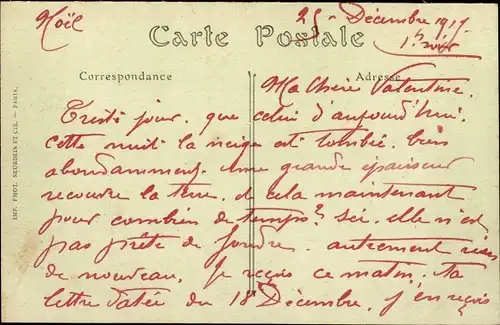 Noël
25 - Décembre 1917
1h soir
Carte Postale
Correspondance
Adresse
IMP. PHOT. NEURDEIN ET CIE. — PARIS.
Ma chère Valentine.
Triste jour. que celui d'aujourd'hui.
cette nuit la neige est tombée. très
abondamment. une grande épaisseur
recouvre la terre. de cela maintenant
pour combien de temps? Ici. elle n'est
pas prête de fondre. autrement rien
de nouveau. Je reçois ce matin. ta
lettre datée du 18 Décembre. j'en reçois